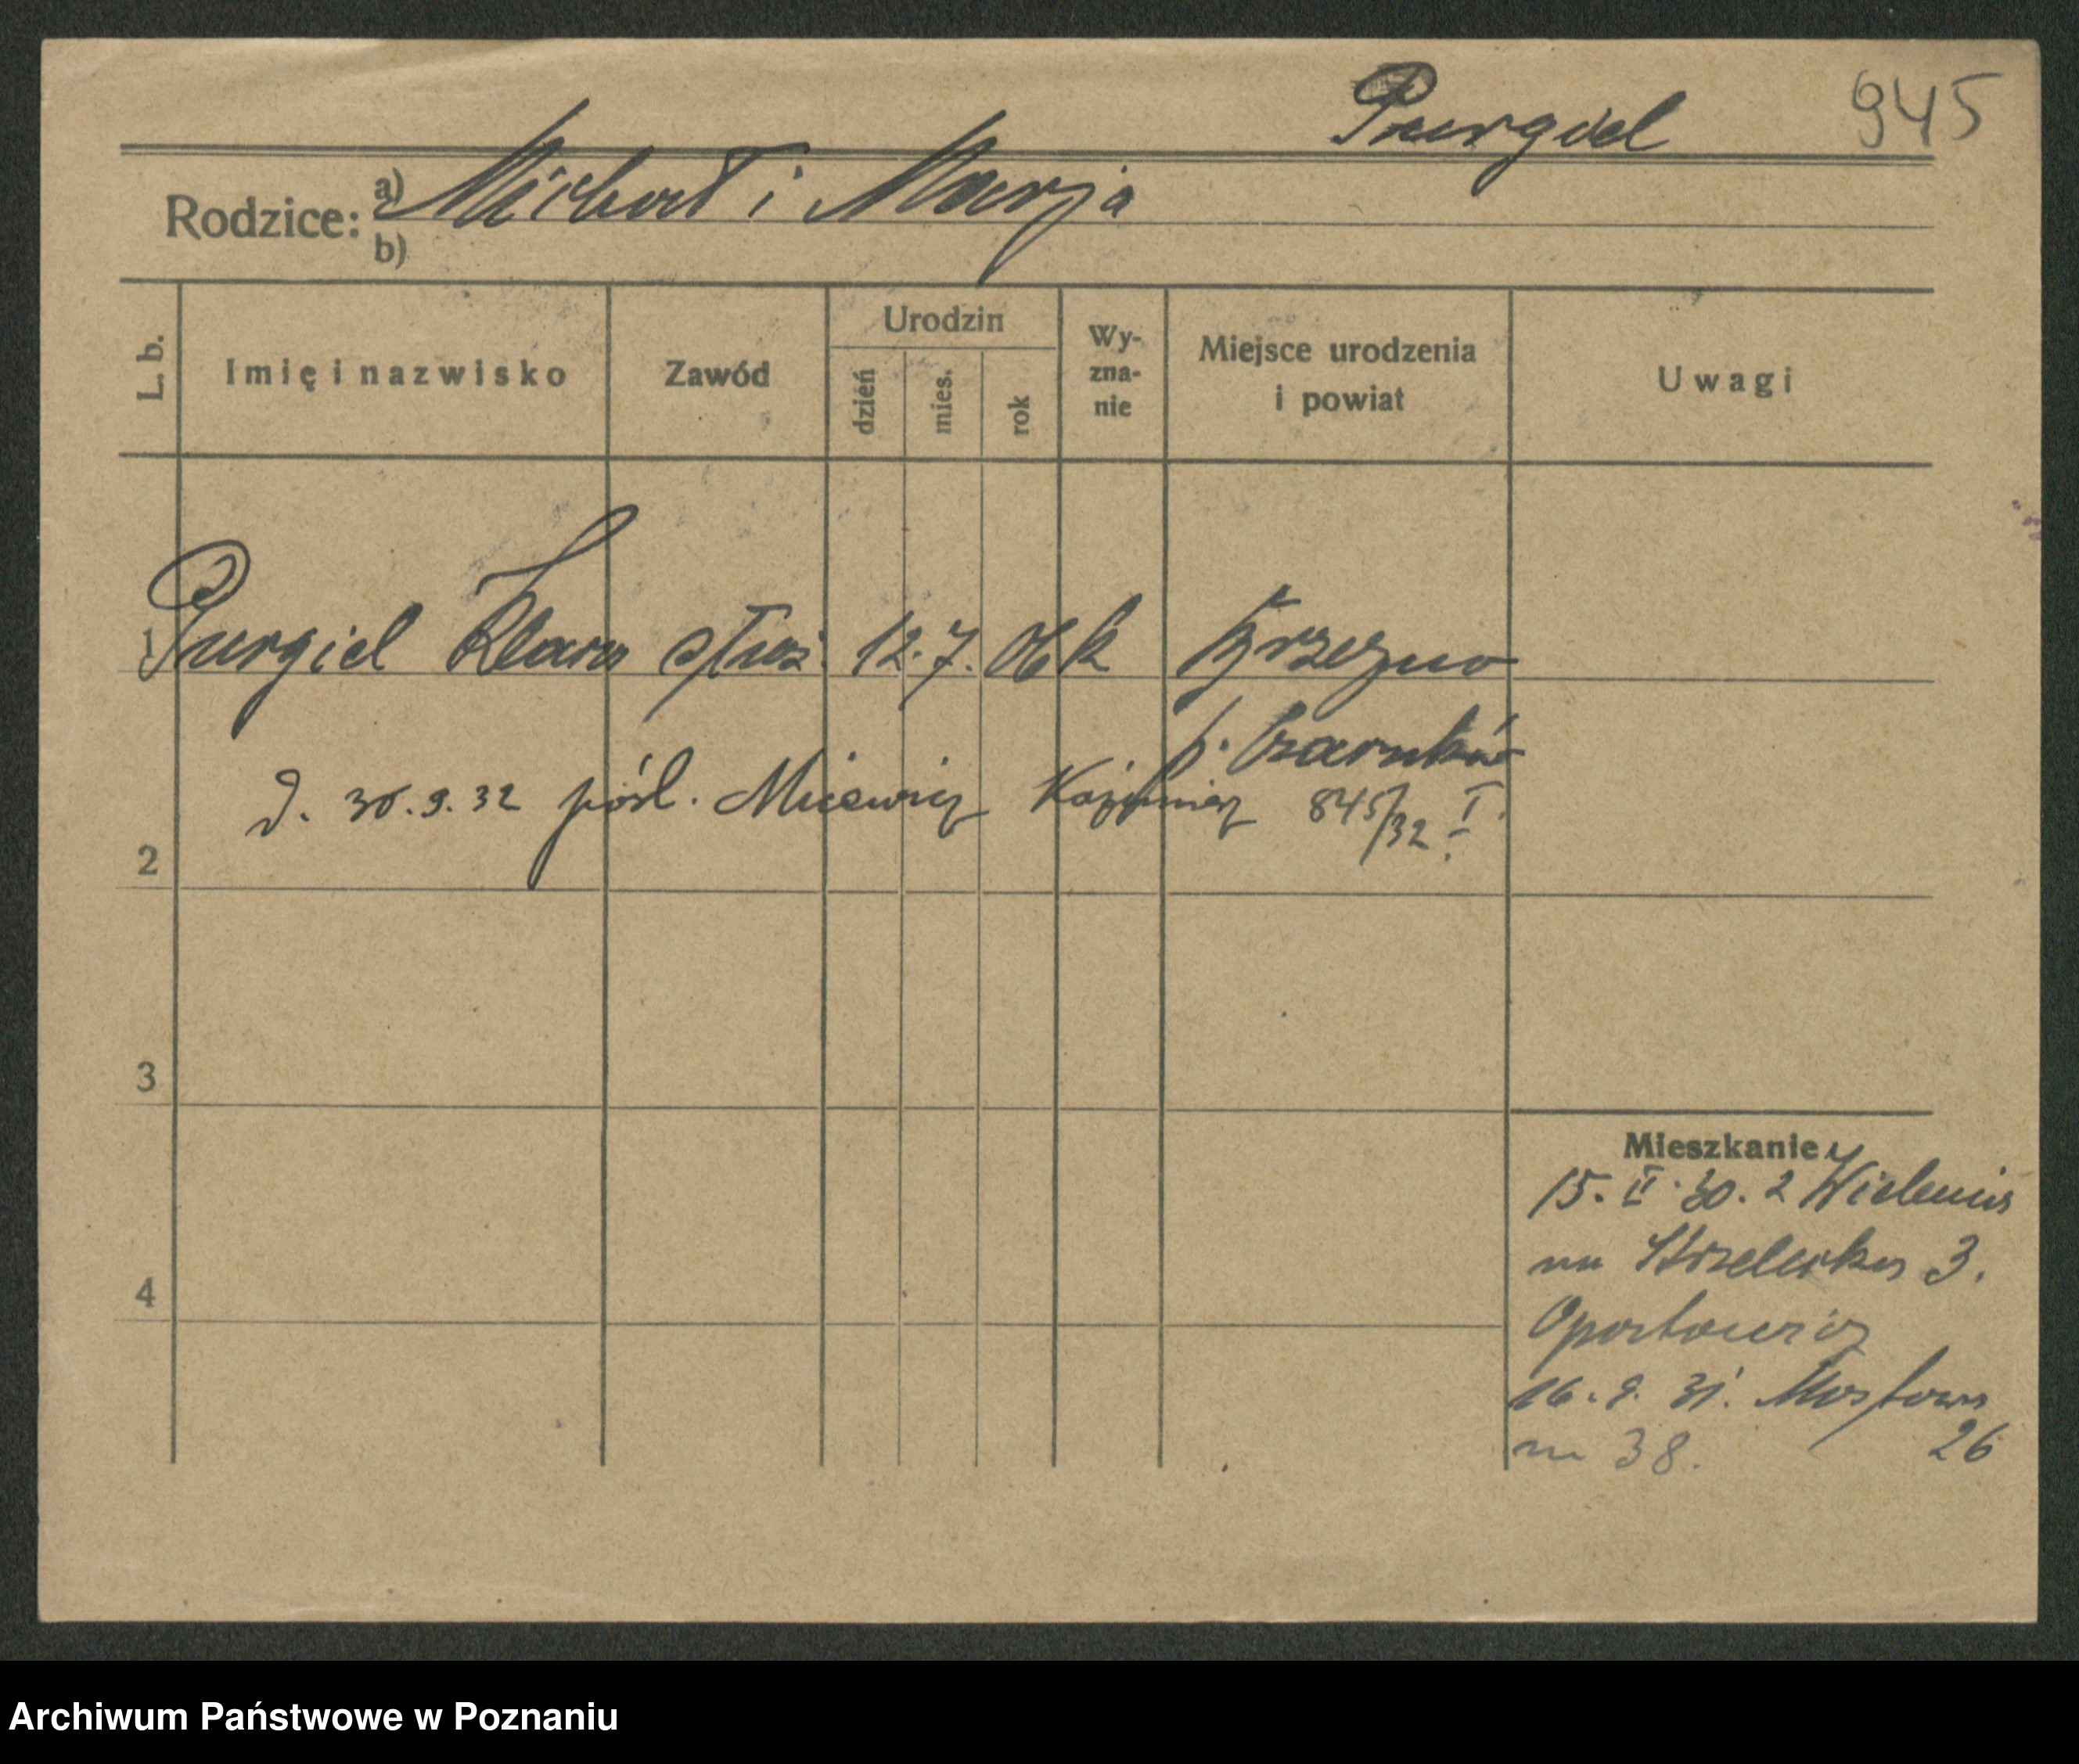 Purgiel 945
Rodzice: a) Michał i Marja
b)
L. b.
Imię i nazwisko
Zawód
Urodzin
dzień
mies.
rok
Wy-
zna-
nie
Miejsce urodzenia
i powiat
Uwagi
1 Purgiel Klara służ. 12. 7. 06 k Brzezno
p. Czarnków
d. 30.9.32 pośl. Kazimierz 845/32 I.
2
3
4
Mieszkanie
15. II. 30. z Wielenia
na Strzelecka 3.
16. 9. 31. Mostowa
26
na 38.
Archiwum Państwowe w Poznaniu